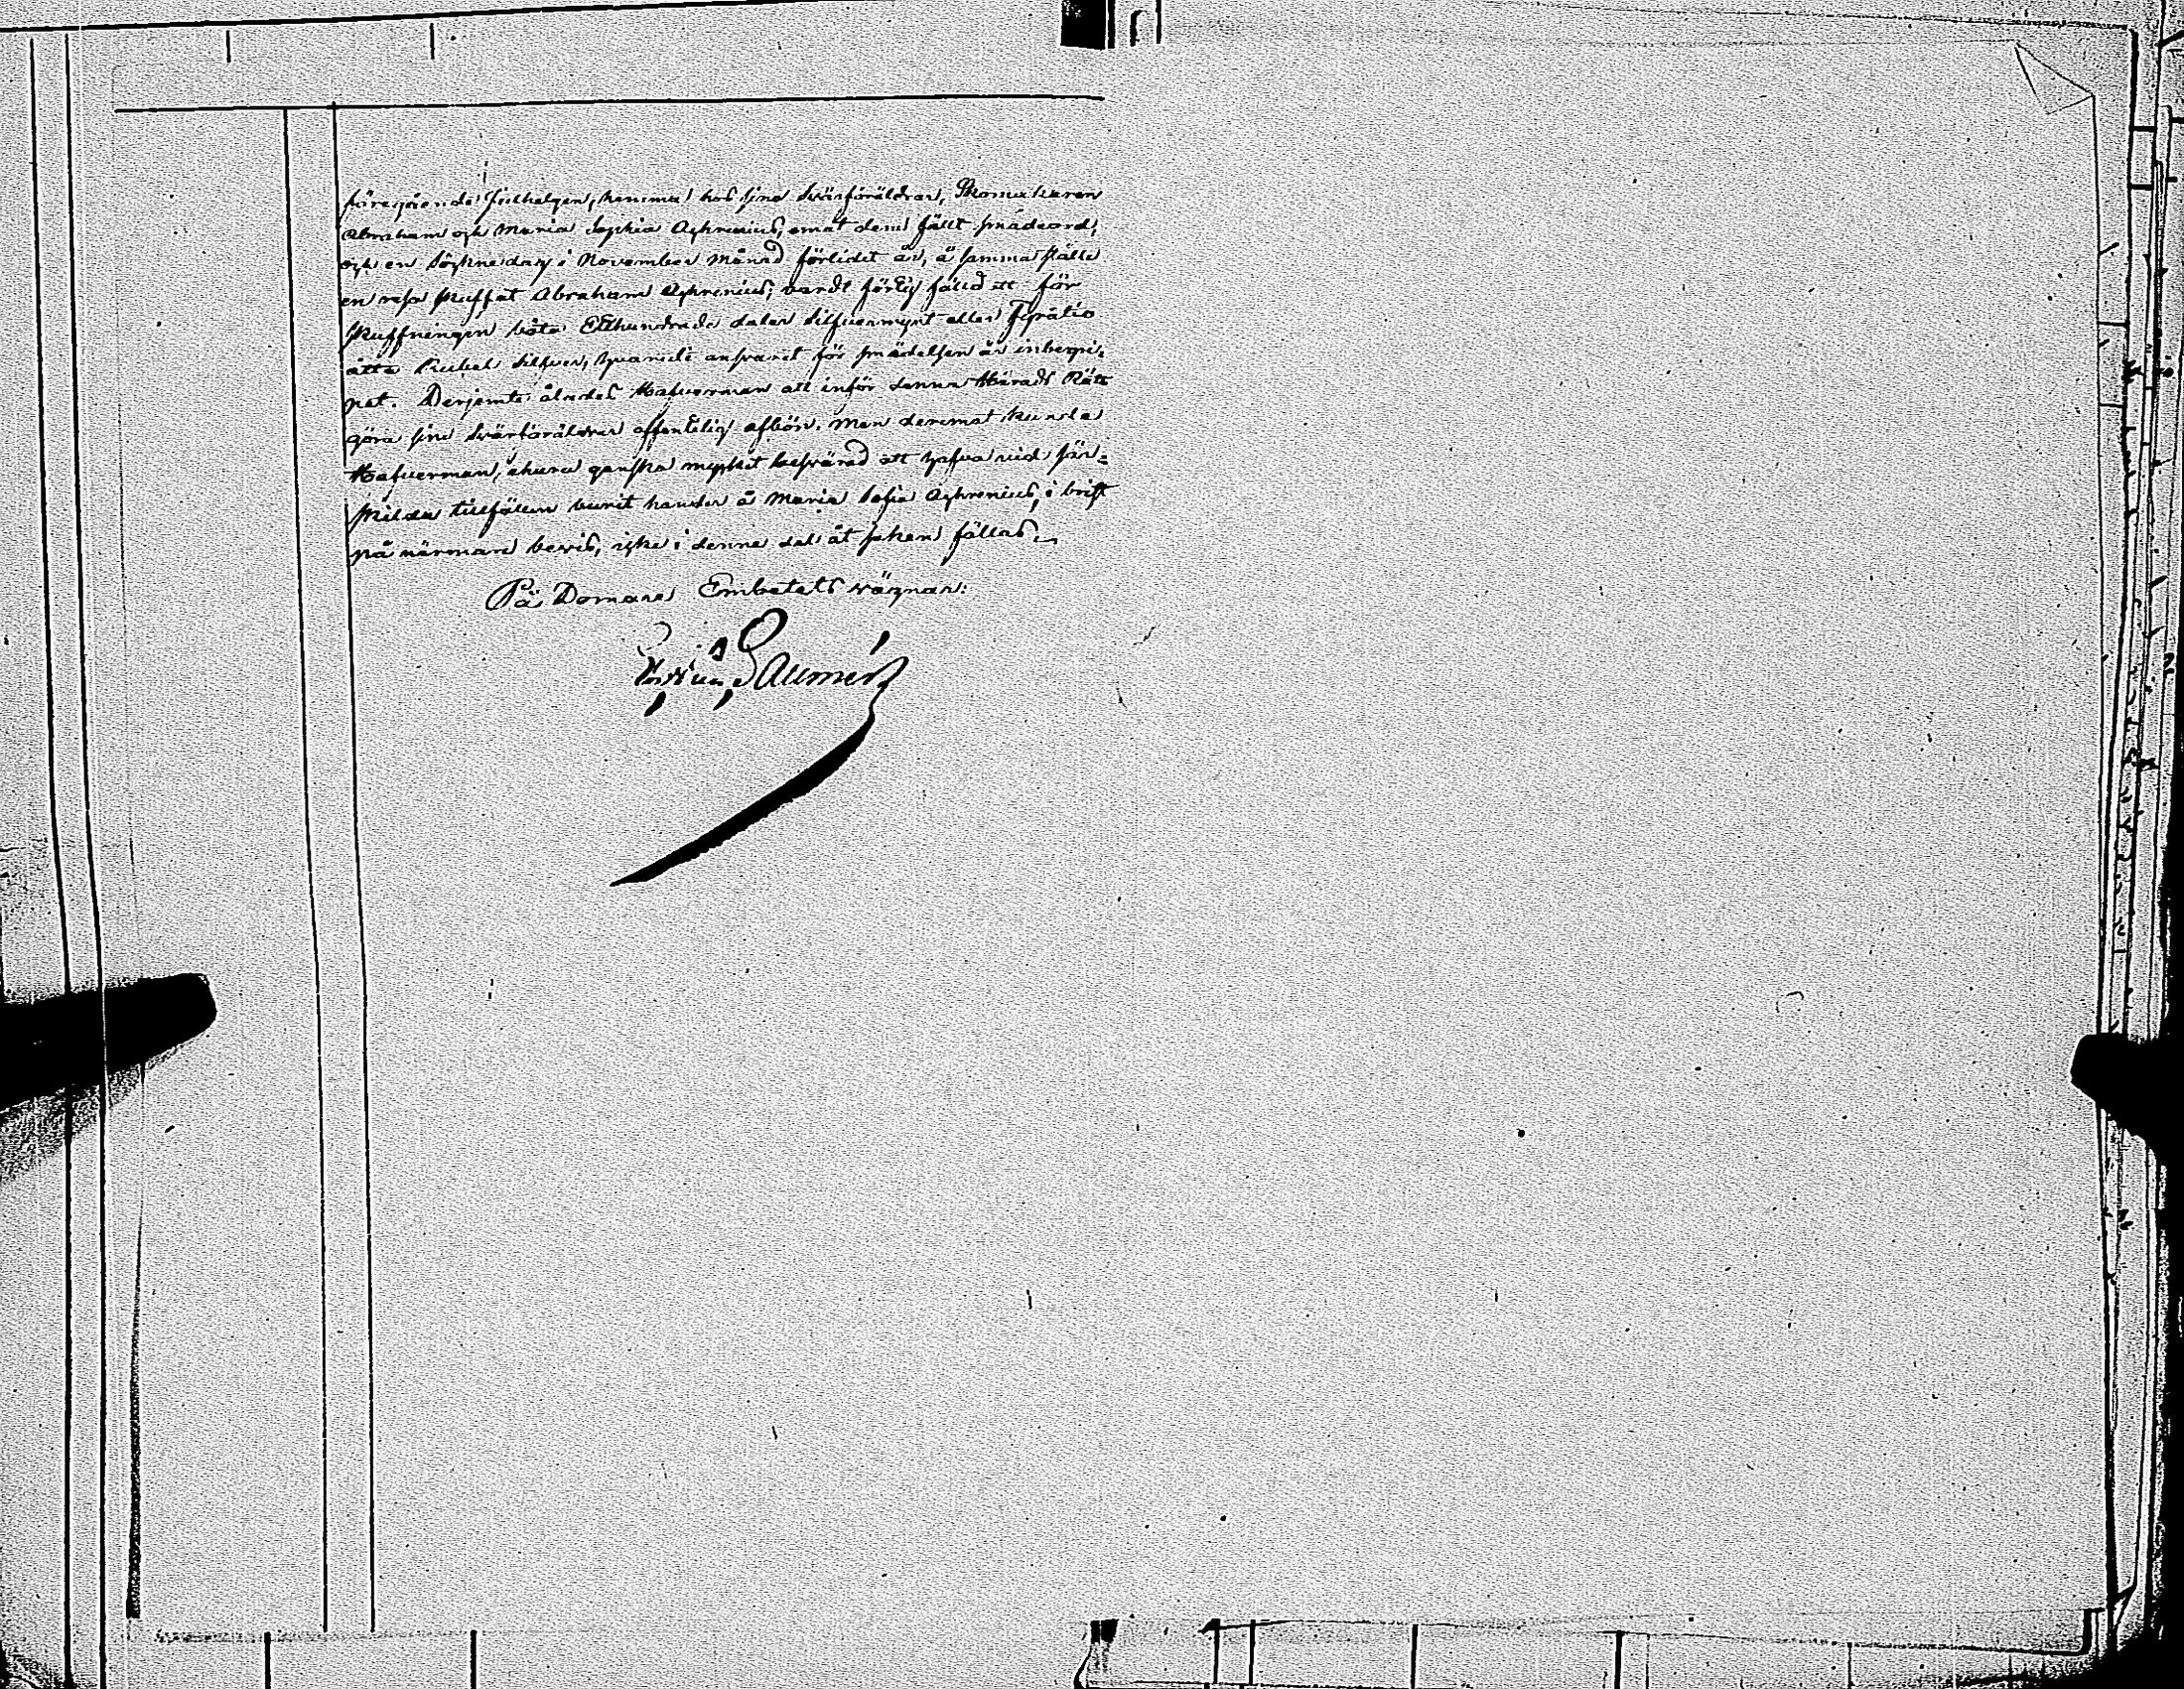 föregående Julhelgen, hemma hos sina Svärföräldrar, Skomakaren
Abraham och Maria Sophia Aghrenius, emot dem fällt smädeord,
och en söckne dag i November månad förlidet år, å samma ställe
en resa skuffat Abraham Aghrenius; vardt förty fälld att för
skuffningen böta Etthundrade daler Silfvermynt eller Fyratio
åtta Rubel Silfver, hvarudi ansvaret för smädelsen är inbegri-
pet. Derjemte ålades Hafverman att inför denna Härads Rätt
göra sine Svärföräldrar offentelig afbön. Men deremot kunde
Hafverman, ehuru ganska mycket besvärad att hafva vid sär-
skilda tillfällen burit händer å Maria Sofia Aghrenius, i brist
på närmare bevis, icke i denne del åt saken fällas.
På Domare Embetets vägnar: